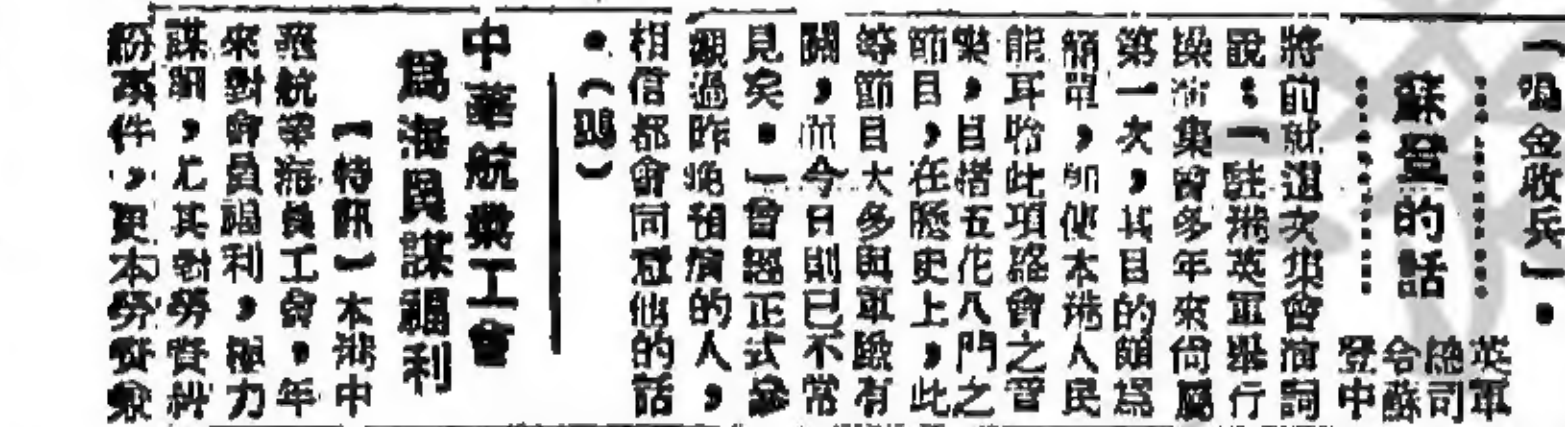 「鳴金收兵」。
蘇登的話
英軍
總司
令蘇
登中
將前就這次集會演詞
說：「駐港英軍舉行
操演集會多年來尙屬
第一次，其目的頗爲
簡單，卽使本港人民
能耳聆此項盛會之音
樂，目擊五花八門之
節目，在歷史上，此
等節目大多與軍隊有
關，而今日則已不常
見矣。」曾經正式參
觀過昨晚預演的人，
相信都會同意他的話
。（鷗）
中華航業工會
爲海員謀福利
【特訊】本港中
華航業海員工會，年
來對會員福利，極力
謀求，尤其對勞資糾
紛事件，更本勞資兼